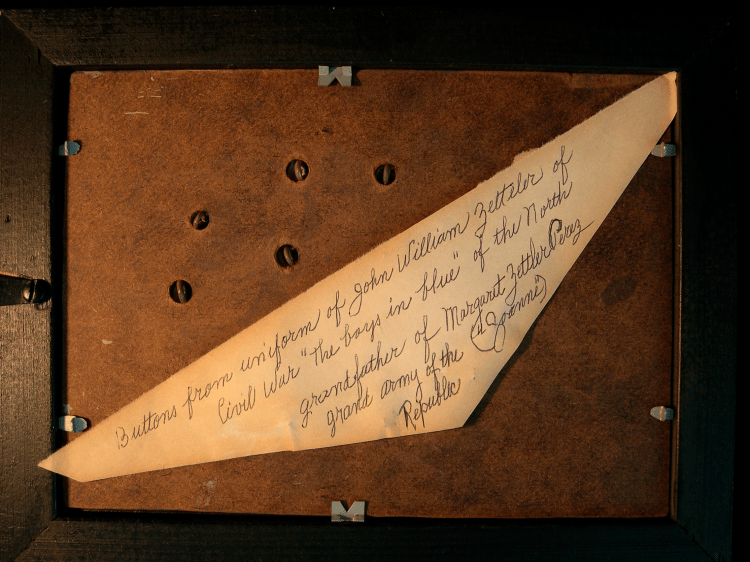 Buttons from uniform of John William Zettler of
Civil War "The boys in blue" of the North
grandfather of Margaret Zettler Perez
("Joanni")
grand army of the
Republic